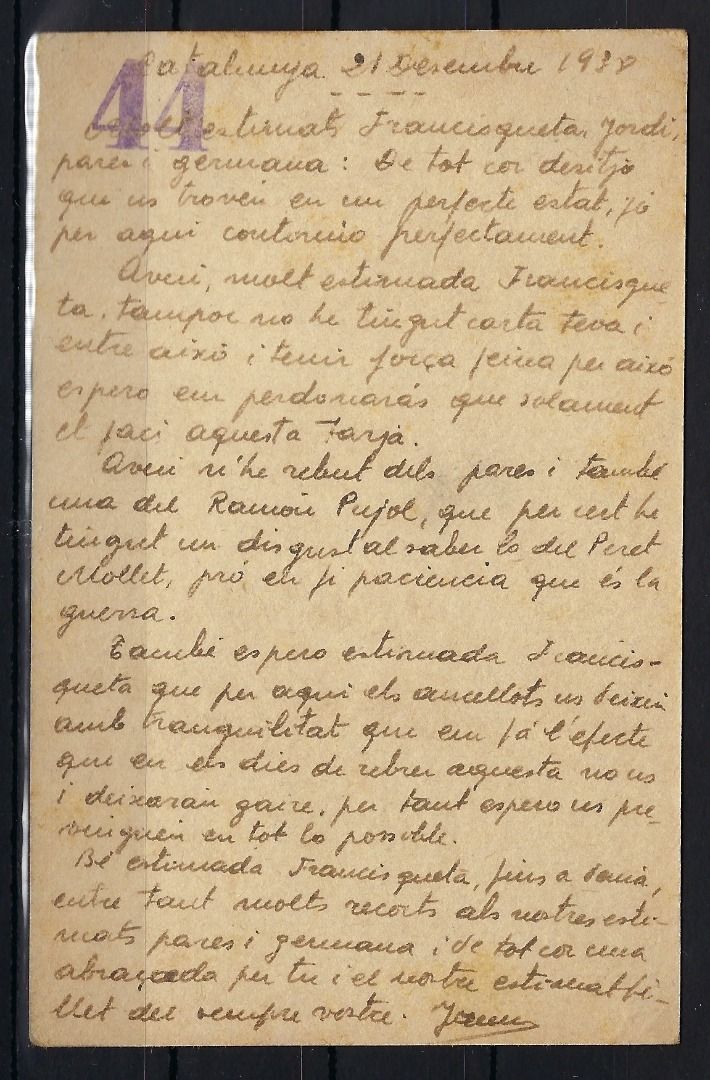 Catalunya 21 Desembre 1938
44
Molt estimats Francisqueta, Jordi,
pares i germana: De tot cor desitjo
que us troveu en un perfecte estat, jo
per aqui contonuo perfectament.
Avui, molt estimada Francisque-
ta, tampoc no he tingut carta teva i
entre aixó i tenir força feina per aixó
espero em perdonarás que solament
et faci aquesta Tarja.
Avui n'he rebut dels pares i també
una del Ramón Pujol, que per cert he
tingut un disgust al saber lo del Peret
Mollet, pró en fi paciencia que és la
guerra.
També espero estimada Francis-
queta que per aqui els aucellots us deixin
amb tranquilitat que em fá l'efecte
que en els dies de rebrer aquesta no us
i deixaran gaire, per tant espero us pre-
vinguen en tot lo possible.
Bé estimada Francisqueta, fins a demá,
entre tant molts recorts als nostres esti-
mats pares i germana i de tot cor una
abraçada per tu i el nostre estimat fi-
llet del sempre vostre.